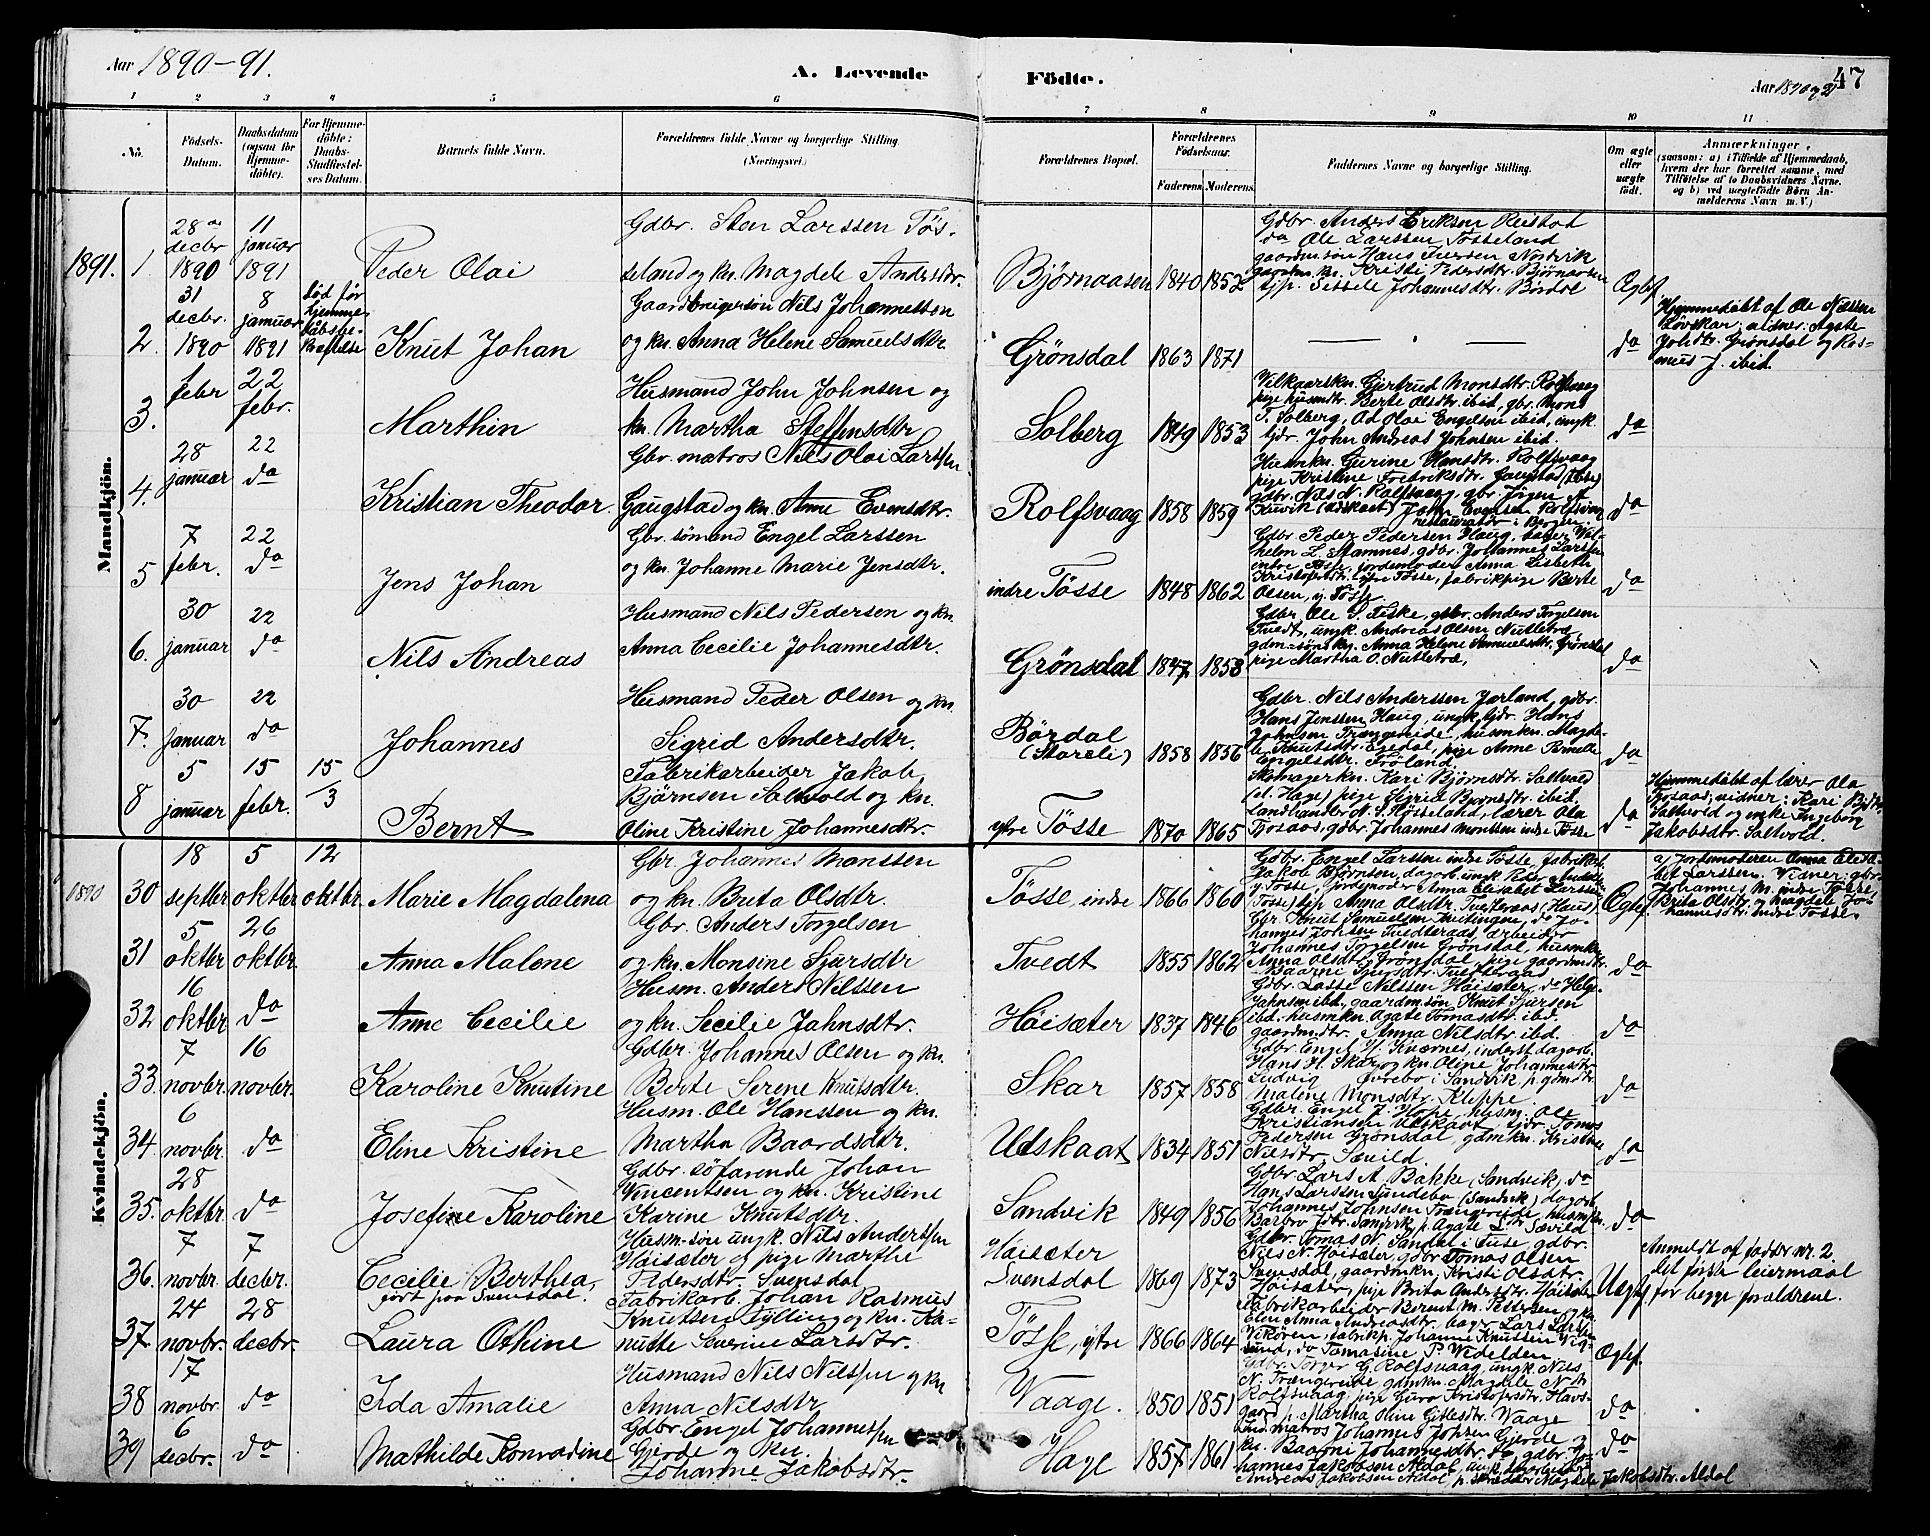 Aar 1890-91.
A. Levende
Födte.
Aar 1890-91
47
1 2 3 4 5 6 7 8 9 10 11
No.
Födsels-Datum.
Daabsdatum (ogsaa for Hjemme-döbte).
For Hjemme-döbte: Daabs-Stadfæstel-ses Datum.
Barnets fulde Navn.
Forældrenes fulde Navne og borgerlige Stilling (Næringsvei.)
Forældrenes Bopæl.
Forældrenes Födselsaar.
Faderens. Moderens.
Faddernes Navne og borgerlige Stilling.
Om ægte eller uægte födt.
Anmærkninger,
(saasom: a) i Tilfælde af Hjemmedaab,
hvem der har forrettet samme, med
Tilföielse af to Daabsvidners Navne.
og b) ved uægtefödte Börn An-
melderens Navn m. V.)
Mandkjön.
1891. 1. 28de decbr 1890 11 januar 1891 Peder Olai
Gdbr. Sten Larssen Tös-
seland og kn. Magdele Andrsdtr.
Björnaasen 1840 1852
Gdbr. Anders Eriksen Reistad
da Ole Larssen Tösseland
gaardm. sön Hans Iversen Nordvik
gaardm. kn. Kristi Pedersdtr. Björnaasen
tjp. Sissele Johannesdtr. Bördal
Ægtef
2. 31 decbr. 1890 8 januar 1891 död för hjemme-dåbsbe-kræftelse Knut Johan
Gaardbrugersön Nils Johannessen
og kn. Anna Helene Samuelsdtr.
Grönsdal 1863 1871
da
Hjemmedöbt af Ole Nilssen
Lövskar; vidner: Agate
Johdtr. Grönsdal og Ras-
mus J. ibid.
3. 1 febr 22 febr. Marthin
Husmand John Johnsen og
kn. Martha Steffensdtr
Solberg 1849 1853
Vilkaarskn. Gjertrud Monsdtr. Rolfsvaag
pige husmdtr. Berte Olsdtr. ibid, gbr. Mons
T. Solberg, Ad Olai Engelsen ibid, ungk.
tjdr. John Andreas Johnsen ibid.
da
4. 28 januar 22 da Kristian Theodor.
Gbr. matros Nils Olai Larssen
Gaugstad og kn. Anne Evensdtr.
Rolfsvaag 1858 1859
Husmkn. Gurine Hansdtr. Rolfsvaag
pige Kristine Fredriksdtr. Gaugstad
gdbr. Nils N. Rolfsvaag, gbr. Jörgen
John Evensen Rolfsvaag
restauratör i Bergen.
da
5 7 febr. 22 da Jens Johan
Gbr. sömand Engel Larssen
og kn. Johanne Marie Jensdtr.
indre Tösse 1848 1862
Gdbr. Peder Pedersen Haug, bager Wil-
helm L. Stamnes, gdbr. Johannes Larssen
indre Tösse, jordemoder Anna Lisbeth
Kristofersdtr. ytre Tösse, fabrikpige Berte
Olsen, y. Tösse
da
6. 30 januar 22 da Nils Andreas
Husmand Nils Pedersen og kn.
Anna Cecilie Johannesdtr.
Grönsdal 1847 1858
Gdbr. Ole S. Teske, gbr. Anders Torgelsen
Tvedt, ungk. Andreas Olsen Nutletræ
gdm-söns kn. Anna Helene Samuelsdtr. Grönsdal
pige Martha O. Nutletræ,
da
7. 30 januar 22 da Johannes
Husmand Peder Olsen og kn.
Sigrid Andersdtr.
Bördal (Storeli) 1858 1856
Gdbr. Nils Anderssen Jarland, gdbr.
Hans Jenssen Haug, ungk. tjdr. Hans
Johnsen Trængereide, husmkn. Magde-
le Knutsdtr. Egedal, pige Anne Brulle
Engelsdtr. Fröland.
da
8 5 januar 15 febr. 15/3 Bernt
Fabrikarbeider Jakob
Björnsen Saltvold og kn.
Oline Kristine Johannesdtr.
ytre Tösse 1870 1865
Skomagerkn. Kari Björnsdtr. Saltvold
(d. Hage) pige Sigrid Bjornsdtr. ibid.
Landhandler N. S. Hösseland, lærer Ola
Fosaas, gdbr. Johannes Monssen indre Tösse
da
Hjemmedöbt af lærer Ola
Fosaas; vidner: Kari Bj.dtr.
Saltvold og enke Ingeborg
Jakobsdtr. Saltvold.
Kvindekjön.
1890 30 18 septbr 5 oktbr 12 oktbr Marie Magdalena
Gbr. Johannes Monssen
og kn. Brita Olsdtr.
Tösse, indre 1866 1860
Gdbr. Engel Larssen indre Tösse, fabrikarb.
Jakob Björnsen, dagarb. ungk. Peter
y. Tösse, jordemoder Anna Elisabet Larssen
Tösse, tjp. Anna Olsdtr. Tvedteraas (Haus)
Ægtef.
a) Jordemoderen Anna Elisa-
bet Larssen. Vidner: gbr.
Johannes M. indre Tösse,
Brita Olsdtr. og Magdele Jo-
hannesdtr. indre Tösse.
31 5 oktbr 26 oktbr. Anna Malene
Gbr. Anders Torgelsen
og kn. Monsine Sjursdtr
Tvedt 1855 1862
Gbr. Knut Samuelsen da Jo-
hannes Johnsen Tvedteraas, arbeider
Johannes Torgelsen Grönsdal, husmkn.
Anna Olsdtr. Grönsdal, pige gaardmdtr.
Baarni Sjursdtr. Tvedteraas
da
32 16 oktbr da Anne Cecilie
Husm. Anders Nilssen
og kn. Secilie Jahnsdtr.
Höisæter 1837 1846
Gdbr. Lasse Nilssen Höisæter, da Helge
Jahnsen ibid., gaardm.sön Knut Sjursen
ibd. husmkn. Agate Tomasdtr. ibd.
gaardm.dtr. Anna Nilsdtr. ibd.
da
33. 7 novbr. 16 novbr. Karoline Knutine
Gdbr. Johannes Olsen og kn.
Berte Serene Knutsdtr.
Skar 1857 1858
Gdbr. Engel H. Kværnes, inderst dagarb.
Hans H. Skar og kn. Oline Johannesdtr
Ludvig Övrebö i Sandvik, p. gdmdtr.
Malene Monsdtr. Kleppe.
da
34. 6 novbr. da Eline Kristine
Husm. Ole Hanssen og kn.
Martha Baardsdtr.
Udskaat 1834 1851
Gdbr. Engel J. Hope, husm. Ole
Kristiansen Udskaat, tjdr. Tomas
Pedersen Grönsdal, gdmkn. Kristine
Nilsdtr. Sævild
da
35. 28 oktbr. da Josefine Karoline
Gdbr. söfarende Johan
Vincentsen og kn. Kristine
Karine Knutsdtr.
Sandvik 1849 1856
Gdbr. Lars A. Bakke (Sandvik), da
Hans Larssen Sundebö (Sandvik) dagarb.
Johannes Johnsen Trængereide, husmkn.
Barbro Jdtr. Sandvik, p. Agate Sdtr. Sævild
da
36. 7 novbr. 7 decbr. Cecilie Berthea,
födt paa Svensdal.
Husm-sön ungk. Nils Anderssen
Höisæter og pige Marthe
Pedersdtr. Svensdal
Höisæter
Svensdal 1869 1873
Gdbr. Tomas N. Sandal i Fuse gdbr.
Nils N. Höisæter, gdbr. Tomas Olsen
Svensdal, gaardmkn. Kristi Olsdtr.
Höisæter, pige Brita Andersdtr. Höisæter
Uægtef.
Anmeldt af fadder nr. 2.
det förste leiermaal
for begge forældrene.
37 24 novbr. 28 decbr. Laura Othine
Fabrikarb. Johan Rasmus
Knutsen Fylling og kn. Ka-
nutte Severine Larsdtr.
Tösse, ytre 1866 1864
Fabrikarbeider Berent M. Petersen og kn.
Elen Anna Andreasdtr. bager Lars Larssen
Vikören, fabrikp. Johanne Knutsen Vig-
sund, do Tomasine P. Wedelden
Ægtef.
38 17 novbr. da Ida Amalie
Husmand Nils Nilssen og kn
Anna Nilsdtr
Waage. 1850 1851
Gdbr. Torger G. Rolfsvaag, ungk. Nils
N. Trængereide, gdmkn. Magdele N.dtr
Rolfsvaag, pige Guro Kristofersdtr. Havs-
gaard, p. Martha Oline Gittlesdtr. Waage
da
39 6 decbr. da Mathilde Konradine
Gdbr. Engel Johannessen
Gjerde og kn.
Johanne Jakobsdtr.
Hage 1857 1861
Ind. matros Johannes Johnsen Gjerde og
kn. Baarni Johannesdtr. da gdbr. Jo-
hannes Jakobsen Aldal, ungk.
Andreas Jakobsen Aldal, p. Magdele Jakobsdtr. Aldal
da